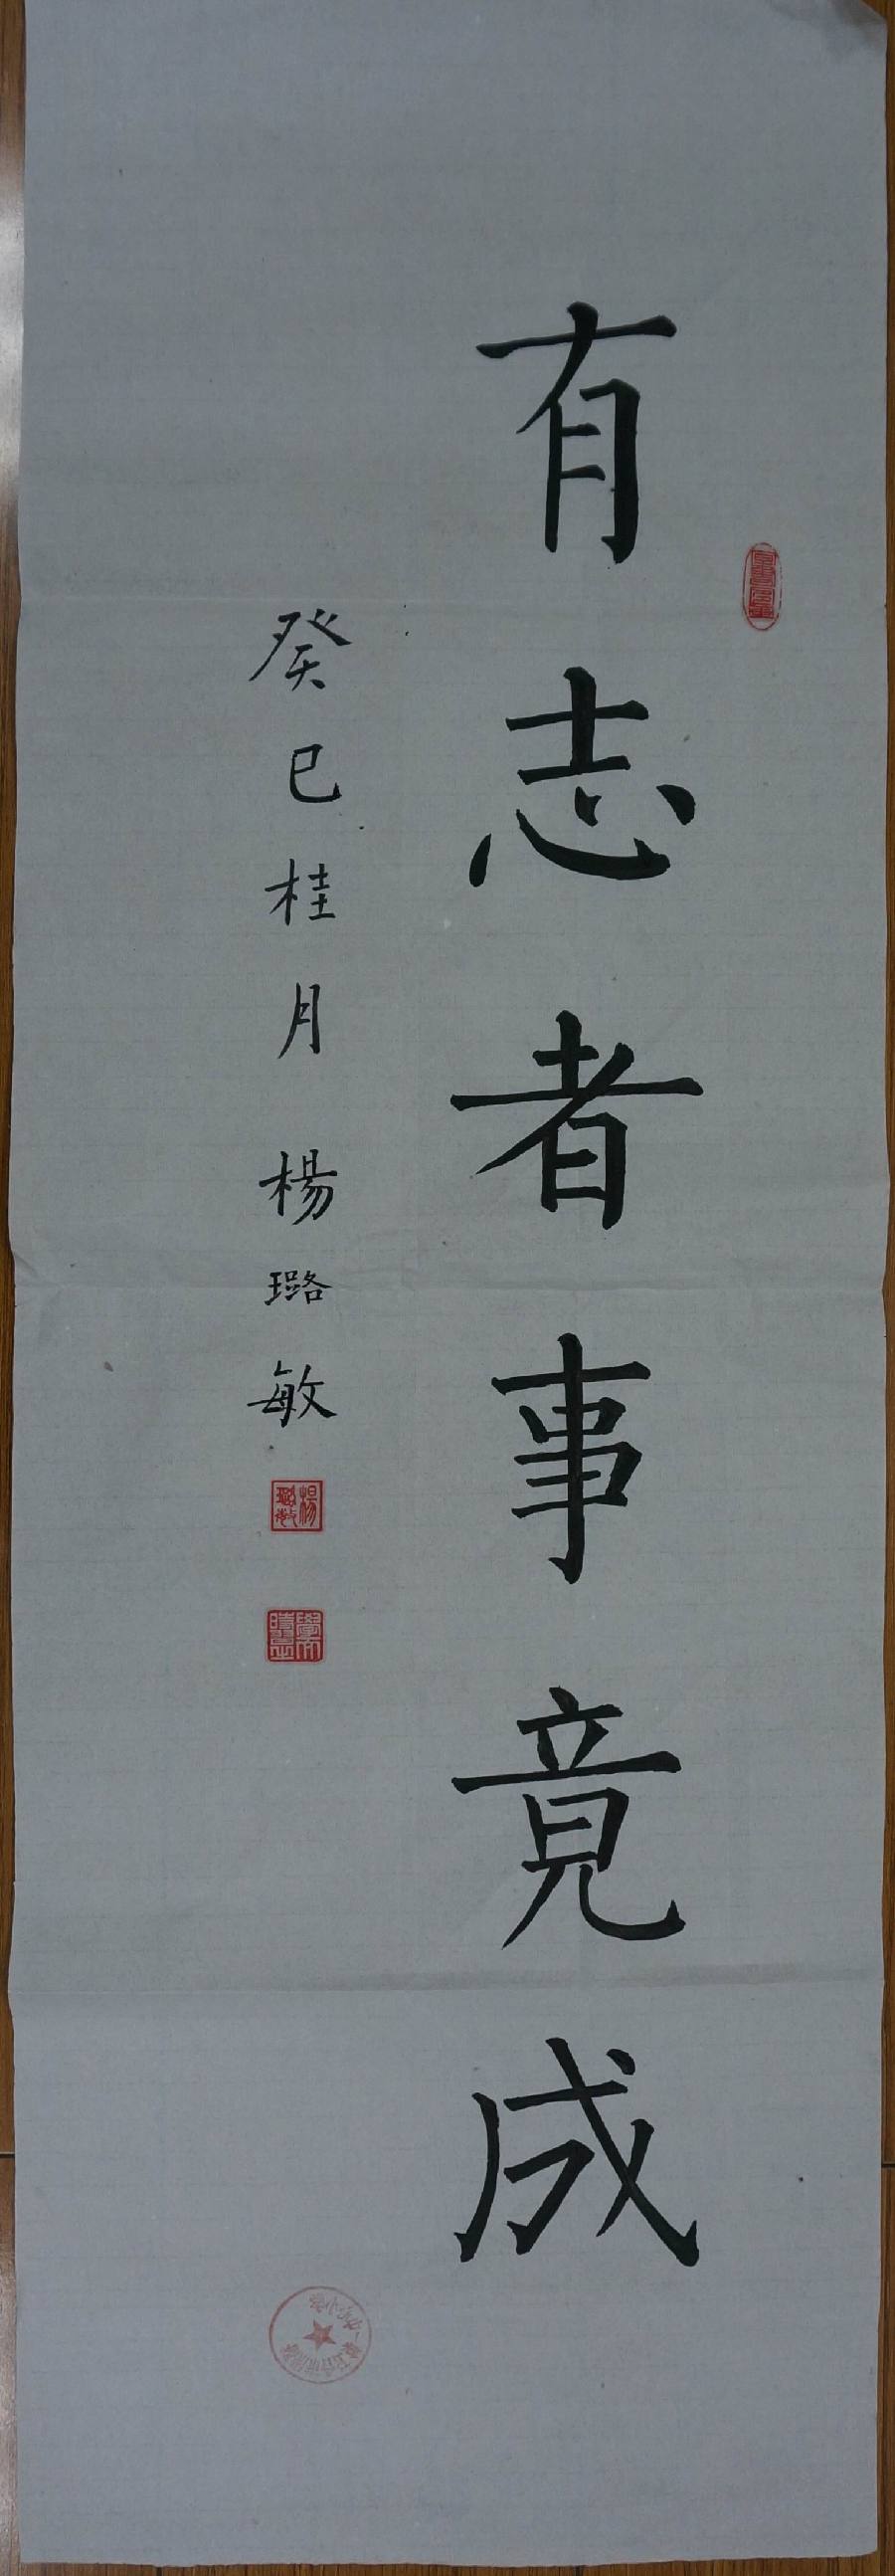 有志者事竟成
癸巳桂月 楊璐敏
楊璐敏